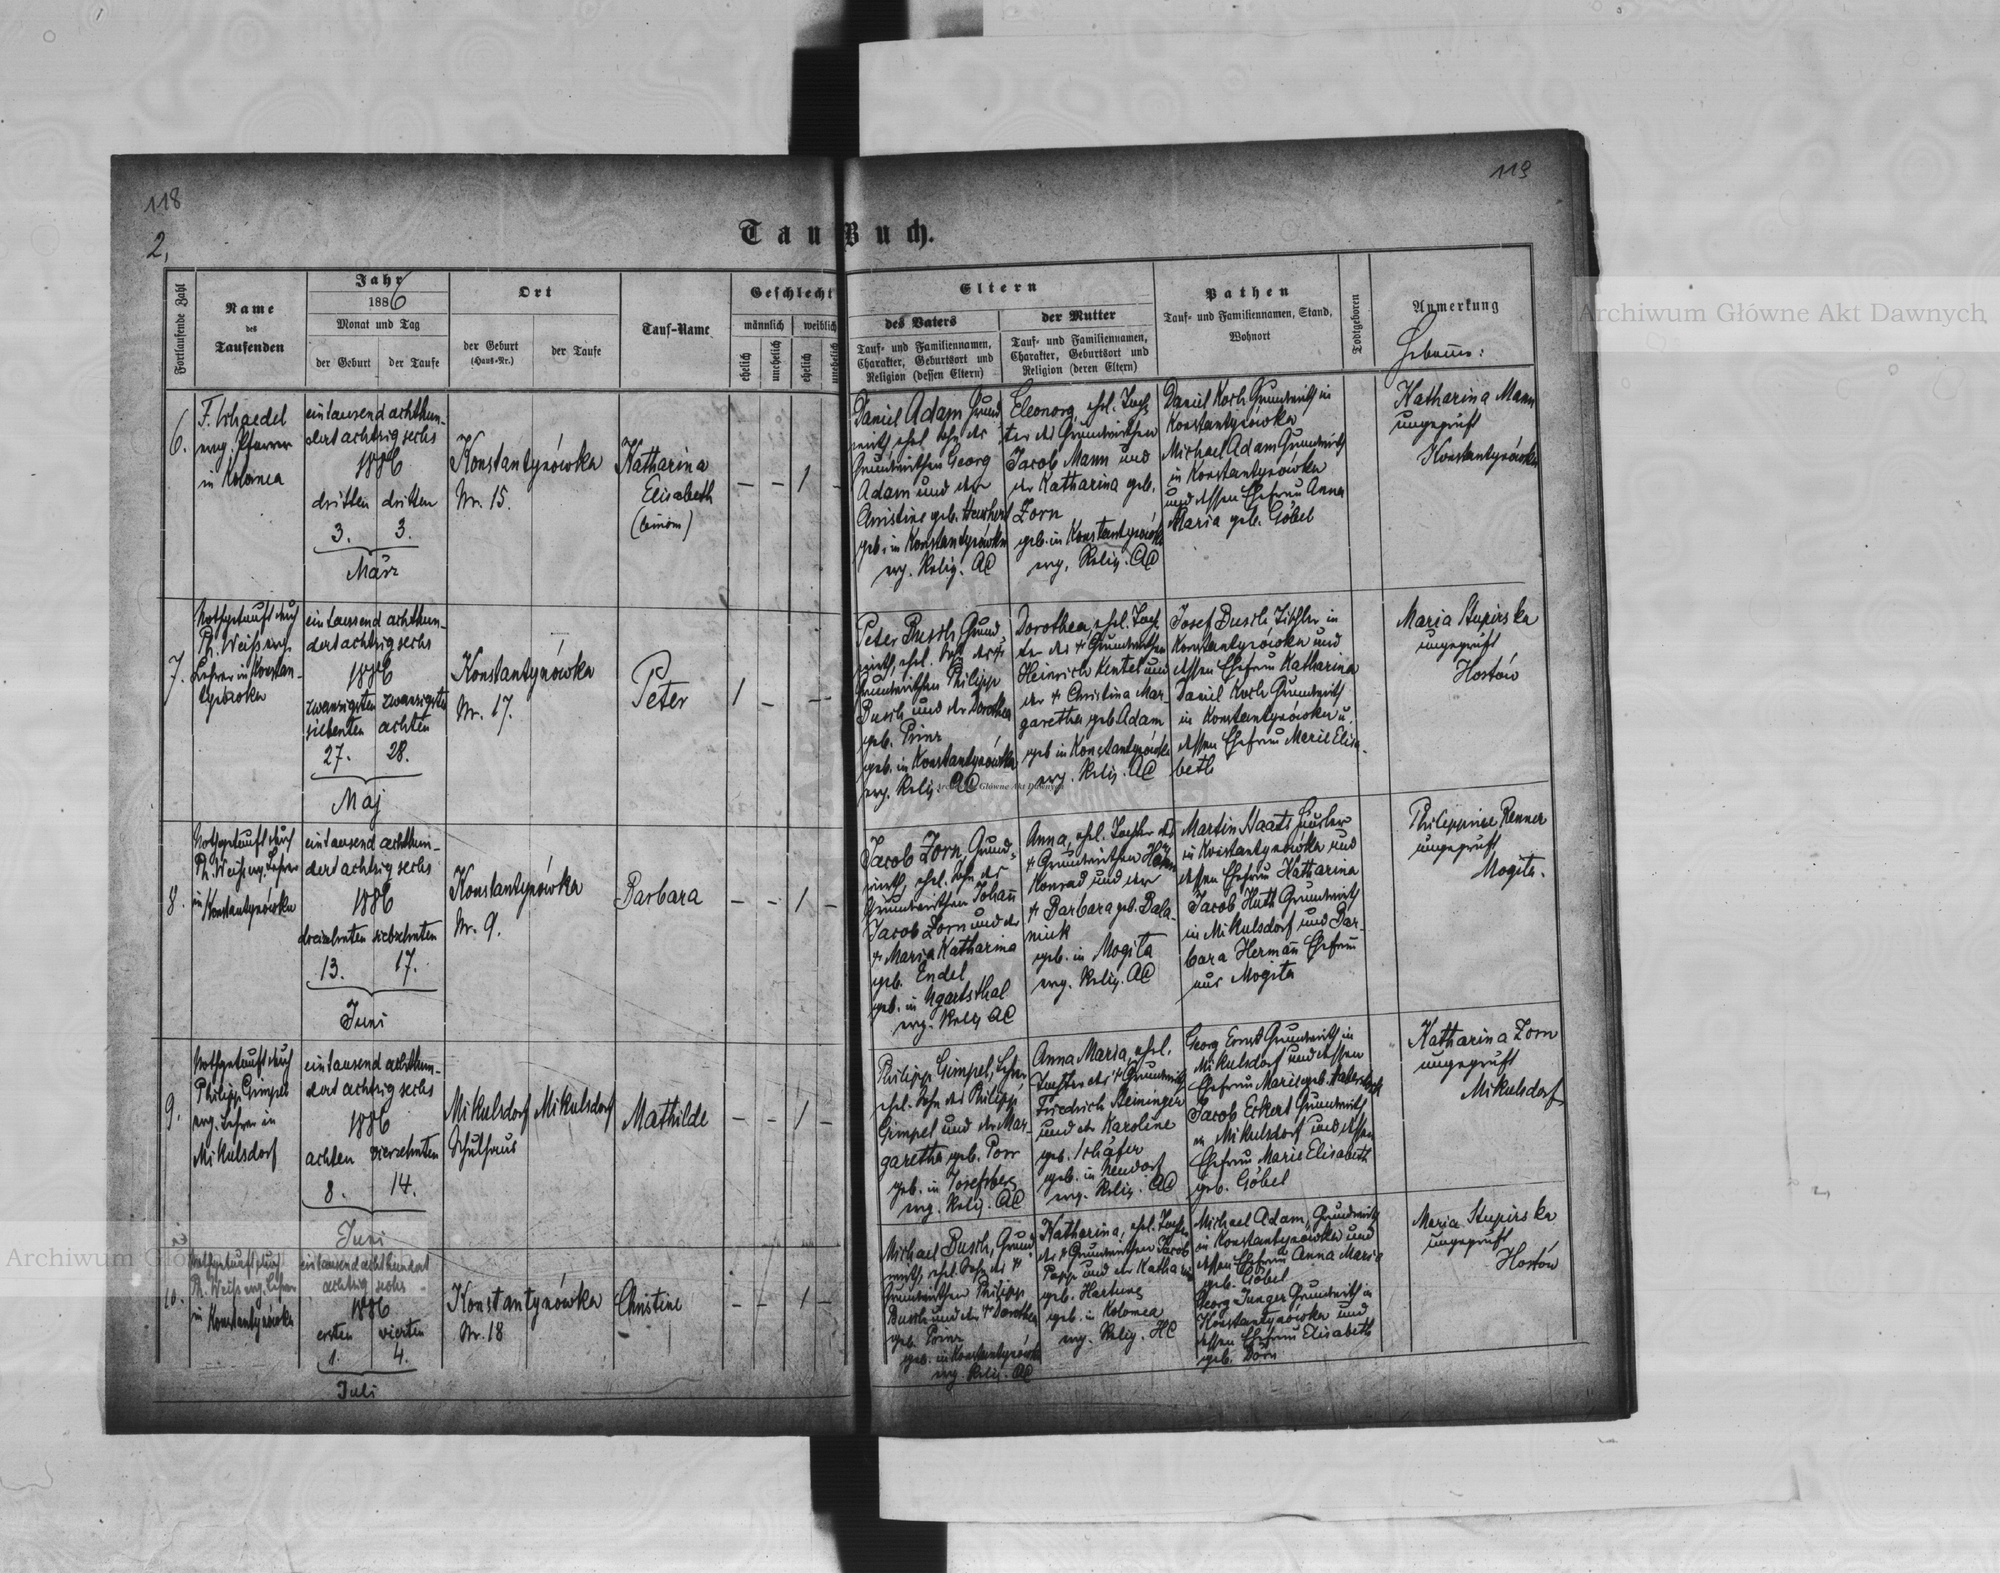 118
119
2.
Tauf Buch.
Fortlaufende Zahl
Name
des
Taufenden
Jahr
1886
Monat und Tag
der Geburt
der Taufe
Ort
der Geburt
(Haus-Nr.)
der Taufe
Tauf-Name
Geschlecht
männlich
weiblich
ehelich
unehelich
ehelich
unehelich
Eltern
des Vaters
Tauf- und Familiennamen,
Charakter, Geburtsort und
Religion (dessen Eltern)
der Mutter
Tauf- und Familiennamen,
Charakter, Geburtsort und
Religion (deren Eltern)
Pathen
Tauf- und Familiennamen, Stand,
Wohnort
Todtgeboren
Anmerkung
Hebamme:
6.
F. Schaedel
evg. Pfarrer
in Kolomea
eintausend achthun-
dert achtzig sechs
1886
dritten dritten
3. 3.
März
Konstantynówka
Nr. 15.
Katharina
Elisabeth
- - 1 -
Daniel Adam Grund
wirth, ehel. Sohn des
Grundwirthen Georg
Adam und der
Christine geb.
geb. in Konstantynówka
evg. Relig. AC
Eleonora, ehel. Toch-
ter des Grundwirthen
Jacob Mann und
der Katharina geb.
Zorn
geb. in Konstantynówka
evg. Relig. AC
Daniel Koch Grundwirth in
Konstantynówka
Michael Adam Grundwirth
in Konstantynówka
und dessen Ehefrau Anna
Maria geb. Göbel
Katharina Mann
ungeprüft
Konstantynówka
7.
Nothgetauft durch
Ph. Weiß evg.
Lehrer in Konstan-
tynówka
eintausend achthun-
dert achtzig sechs
1886
zwanzigsten zwanzigsten
siebenten achten
27. 28.
Maj
Konstantynówka
Nr. 17.
Peter
1 - - -
Peter Busch Grund-
wirth, ehel. Sohn des †
Grundwirthen Philipp
Busch und der Dorothea
geb. Prinz
geb. in Konstantynówka
evg. Relig. AC
Dorothea, ehel. Toch-
ter des † Grundwirthen
Heinrich Kentel und
der † Christina Mar-
garetha geb Adam
geb in Konstantynówka
evg. Relig. AC
Josef Busch Tischler in
Konstantynówka und
dessen Ehefrau Katharina
Daniel Koch Grundwirth
in Konstantynówka u.
dessen Ehefrau Marie Elisa-
beth
Maria Stupirska
ungeprüft
Hostów
8.
Nothgetauft durch
Ph. Weiß evg. Lehrer
in
Konstantynówka
eintausend achthun-
dert achtzig sechs
1886
dreizehnten siebzehnten
13. 17.
Juni
Konstantynówka
Nr. 9.
Barbara
- - 1 -
Jacob Zorn, Grund-
wirth, ehel. Sohn des
Grundwirthen Johann
Jacob Zorn und der
† Maria Katharina
geb. Endel
geb. in Ugartsthal
evg. Relig AC
Anna, ehel. Tochter des
† Grundwirthen
Konrad und der
† Barbara geb. Bala-
niuk
geb. in Mogita
evg. Relig. AC
Martin Haats Häusler
in Konstantynówka und
dessen Ehefrau Katharina
Jacob Huth Grundwirth
in Mikulsdorf und Bar-
bara Hermann Ehefrau
aus Mogita
Philippine Renner
ungeprüft
Mogita.
9.
Nothgetauft durch
Philipp Gimpel
evg. Lehrer in
Mikulsdorf
eintausend achthun-
dert achtzig sechs
1886
achten vierzehnten
8. 14.
Juni
Mikulsdorf Mikulsdorf
Schulhaus
Mathilde
- - 1 -
Philipp Gimpel, Lehrer
ehel. Sohn des Philipp
Gimpel und der Mar-
garetha geb. Porr
geb. in Josefsberg
evg. Relig. AC
Anna Maria, ehel.
Tochter des † Grundwirth
Friedrich Reininger
und der Karoline
geb. Schäfer
geb. in Neudorf
evg. Relig. AC
Georg Ernst Grundwirth in
Mikulsdorf und dessen
Ehefrau Marie geb.
Jacob Eckert Grundwirth
in Mikulsdorf und dessen
Ehefrau Marie Elisabeth
geb. Göbel
Katharina Zorn
ungeprüft
Mikulsdorf
10.
Nothgetauft durch
Ph. Weiß evg. Lehrer
in Konstantynówka
eintausend achthundert
achtzig sechs
1886
ersten vierten
1. 4.
Juli
Konstantynówka
Nr. 18
Christine
- - 1 -
Michael Busch, Grund-
wirth, ehel. Sohn des †
Grundwirthen Philipp
Busch und der † Dorothea
geb. Prinz
geb. in Konstantynówka
evg. Relig. AC
Katharina, ehel. Tochter
des † Grundwirthen Jacob
Popp und der Katharina
geb. Hartung
geb. in Kolomea
evg. Relig. HC
Michael Adam, Grundwirth
in Konstantynówka und
dessen Ehefrau Anna Maria
geb. Göbel
Georg Junger Grundwirth in
Konstantynówka und
dessen Ehefrau Elisabeth
geb. Dörn
Maria Stupirska
ungeprüft
Hostów
Archiwum Główne Akt Dawnych
Archiwum Główne Akt Dawnych
Archiwum Główne Akt Dawnych